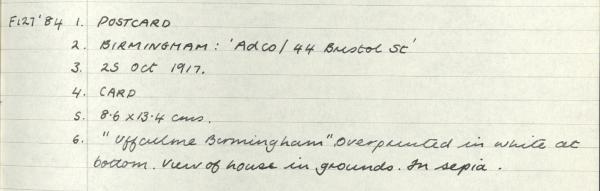 F127'84 1. POSTCARD
2. BIRMINGHAM: 'Adco/44 Bristol St'
3. 25 Oct 1917.
4. CARD
5. 8.6 x 13.4 cms.
6. "Uffculme Birmingham" Overprinted in white at
bottom. View of house in grounds. In sepia.